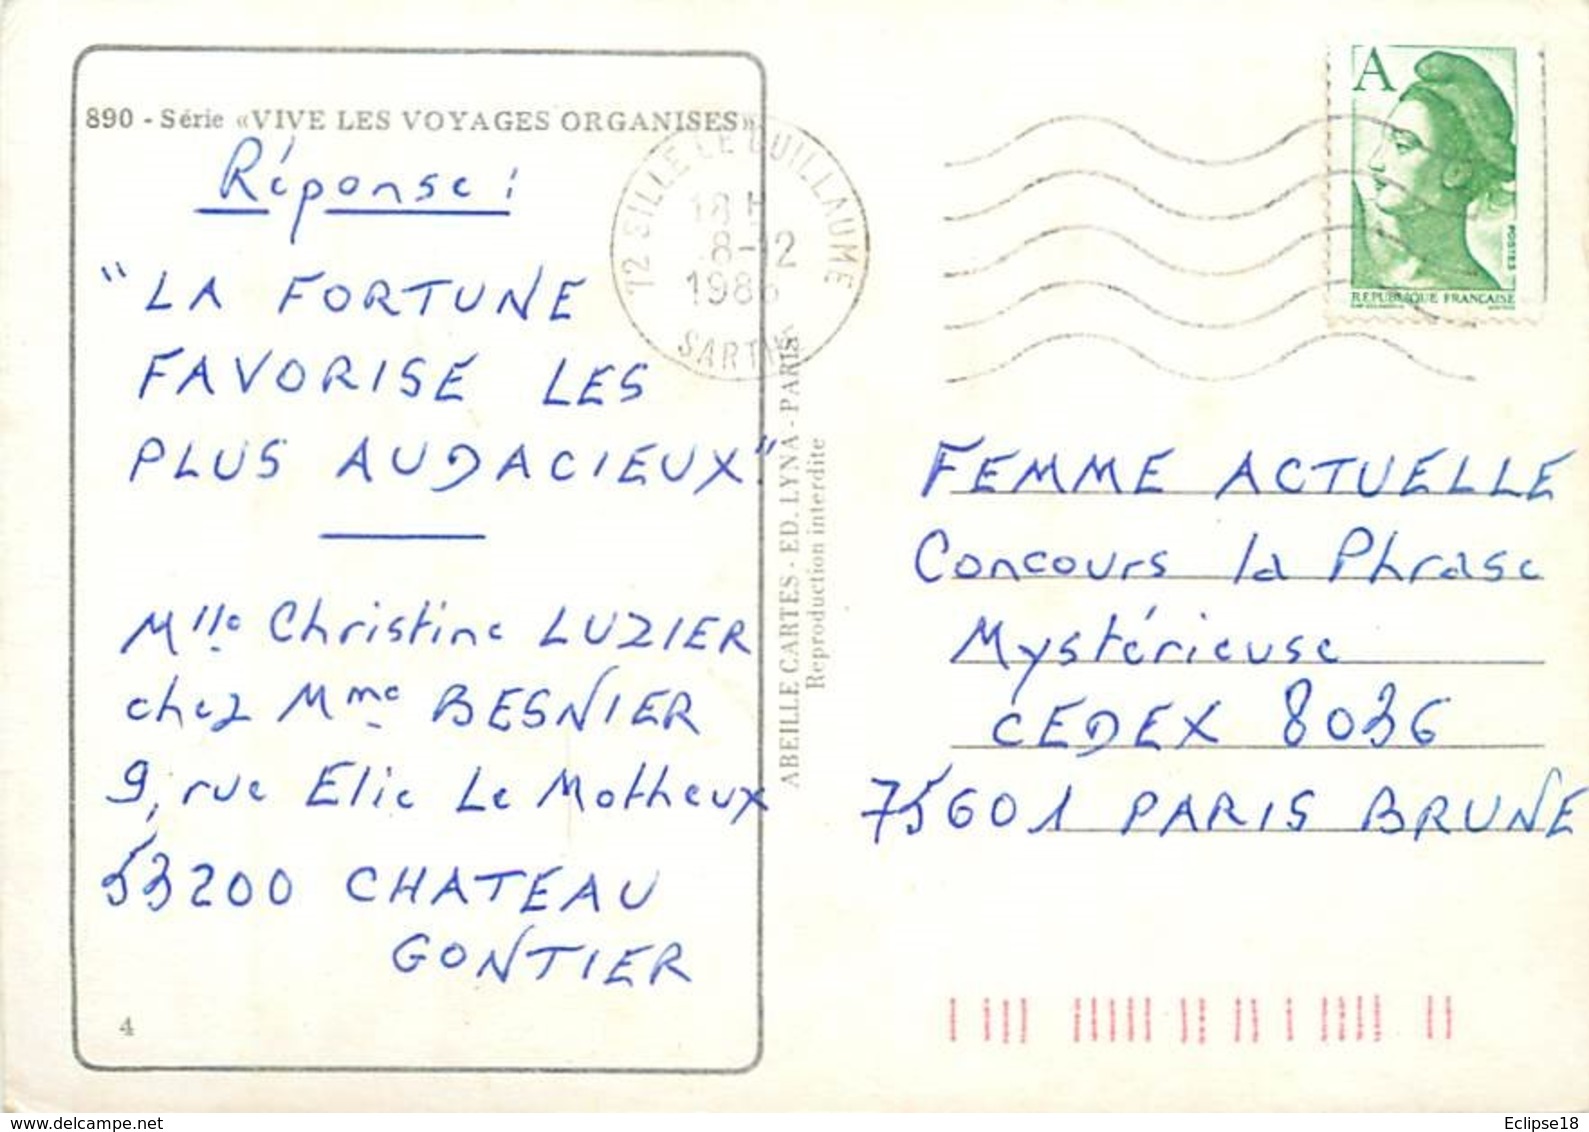 890 - Série «VIVE LES VOYAGES ORGANISES»
Réponse :
"LA FORTUNE
FAVORISE LES
PLUS AUDACIEUX."
Mlle Christine LUZIER
chez Mme BESNIER
9, rue Elie Le Motheux
53200 CHATEAU
GONTIER
4
72 SILLE LE GUILLAUME
18 H
8-12
1986
SARTHE
ABEILLE CARTES - ED. LYNA - PARIS
Reproduction interdite
A
POSTES
REPUBLIQUE FRANÇAISE
FEMME ACTUELLE
Concours la Phrase
Mystérieuse
CEDEX 8036
75601 PARIS BRUNE
Eclipse18